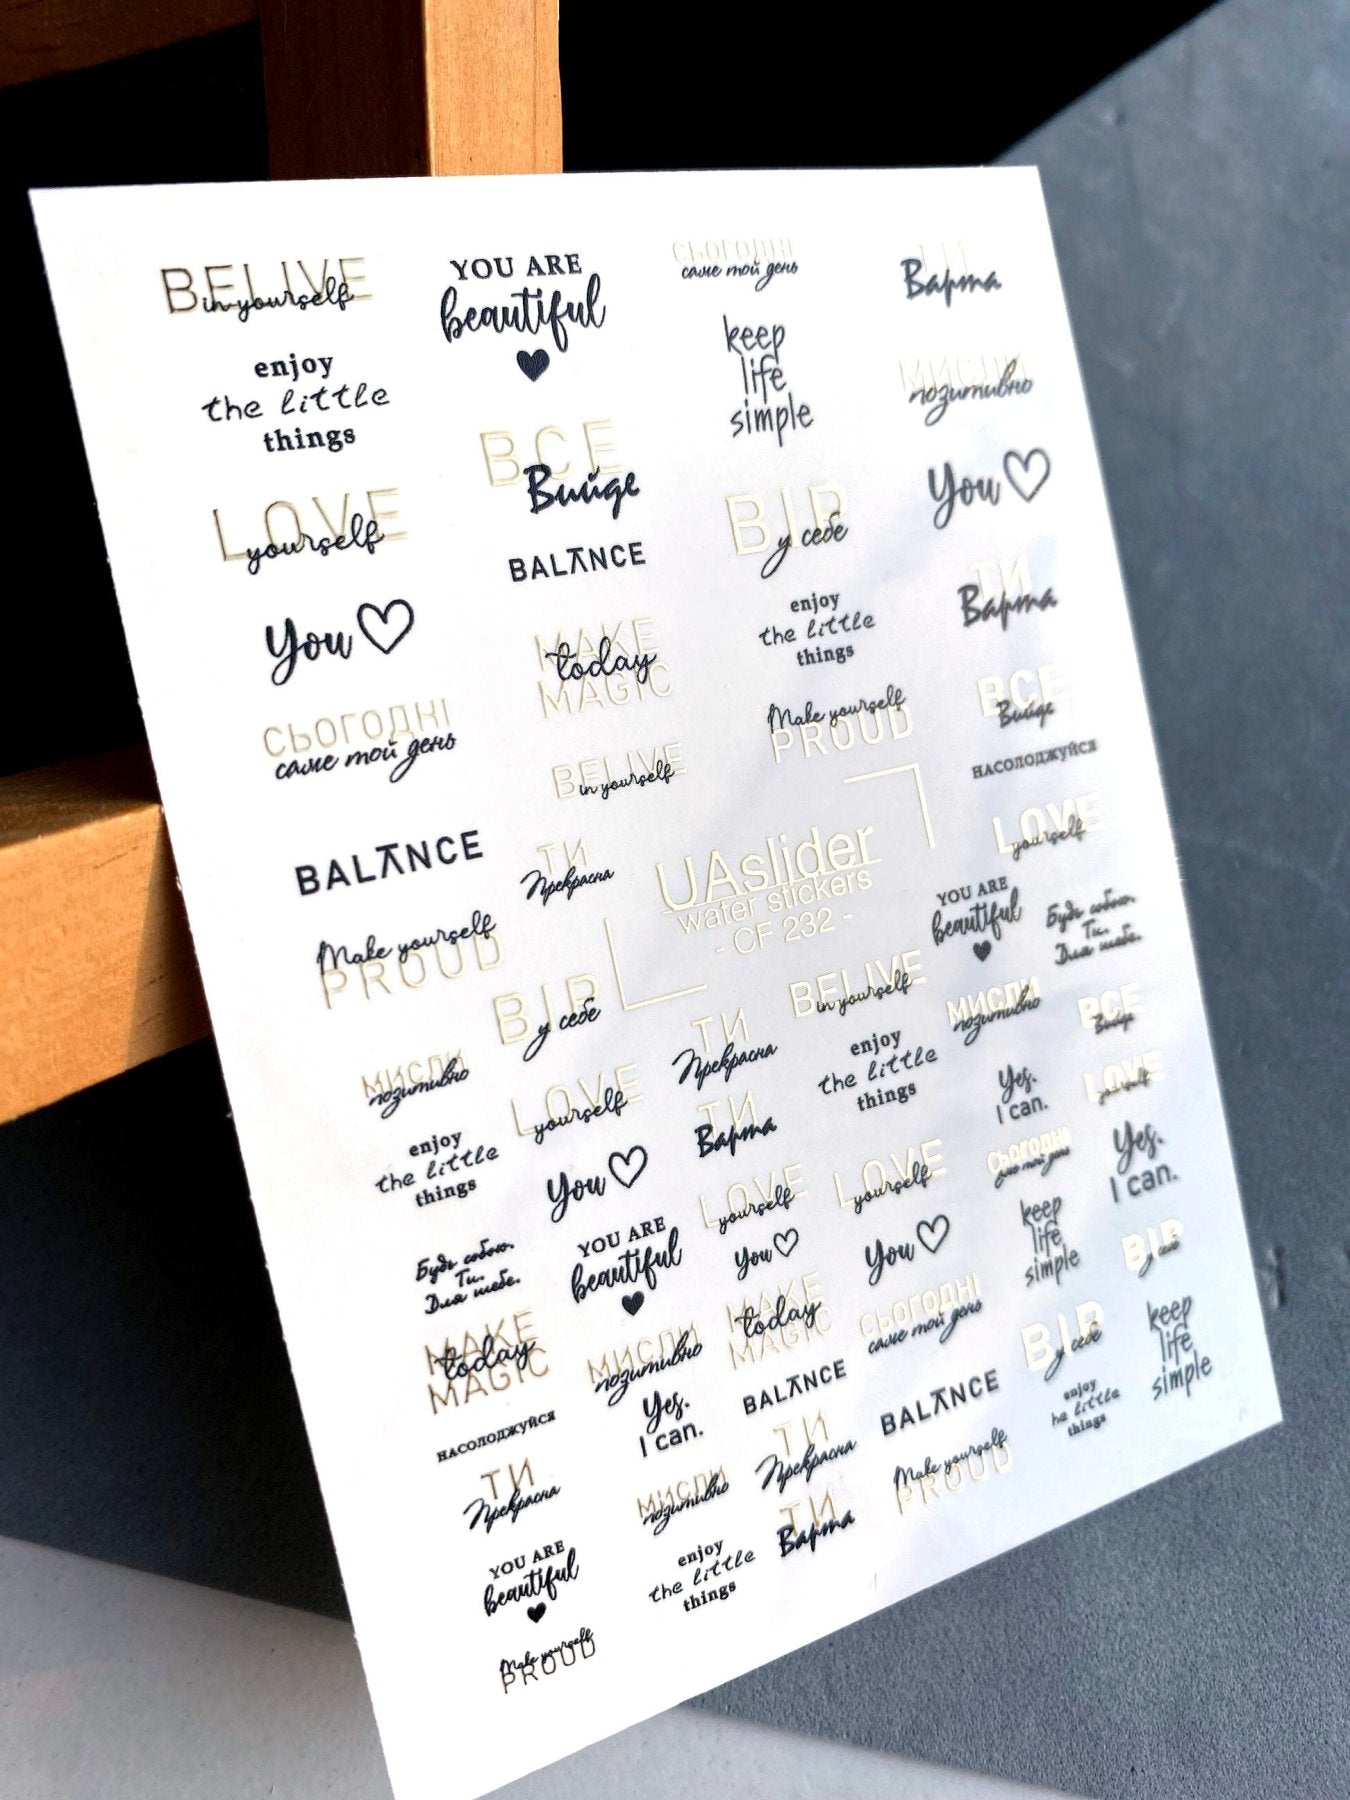 BELIVE
in yourself
YOU ARE
beautiful
СЬОГОДНІ
саме той день
ТИ
Варта
enjoy
the little
things
keep
life
simple
МИСЛИ
позитивно
ВСЕ
Вийде
LOVE
yourself
ВІР
у себе
You
BALANCE
You
enjoy
the little
things
ТИ
Варта
MAKE
today
MAGIC
СЬОГОДНІ
саме той день
Make yourself
PROUD
ВСЕ
Вийде
BELIVE
in yourself
НАСОЛОДЖУЙСЯ
BALANCE
ТИ
Прекрасна
UAslider
water stickers
- CF 232 -
LOVE
yourself
Make yourself
PROUD
YOU ARE
beautiful
Будь собою.
Ти.
Для тебе.
ВІР
у себе
BELIVE
in yourself
МИСЛИ
позитивно
ВСЕ
Вийде
МИСЛИ
позитивно
ТИ
Прекрасна
enjoy
the little
things
Yes.
I can.
LOVE
yourself
LOVE
yourself
ТИ
Варта
enjoy
the little
things
You
LOVE
yourself
LOVE
yourself
СЬОГОДНІ
саме той день
Yes.
I can.
Будь собою.
Ти.
Для тебе.
YOU ARE
beautiful
You
You
keep
life
simple
ВІР
у себе
MAKE
today
MAGIC
МИСЛИ
позитивно
MAKE
today
MAGIC
СЬОГОДНІ
саме той день
ВІР
у себе
keep
life
simple
НАСОЛОДЖУЙСЯ
Yes.
I can.
BALANCE
BALANCE
enjoy
he little
things
ТИ
Прекрасна
МИСЛИ
позитивно
ТИ
Прекрасна
Make yourself
PROUD
YOU ARE
beautiful
enjoy
the little
things
ТИ
Варта
Make yourself
PROUD